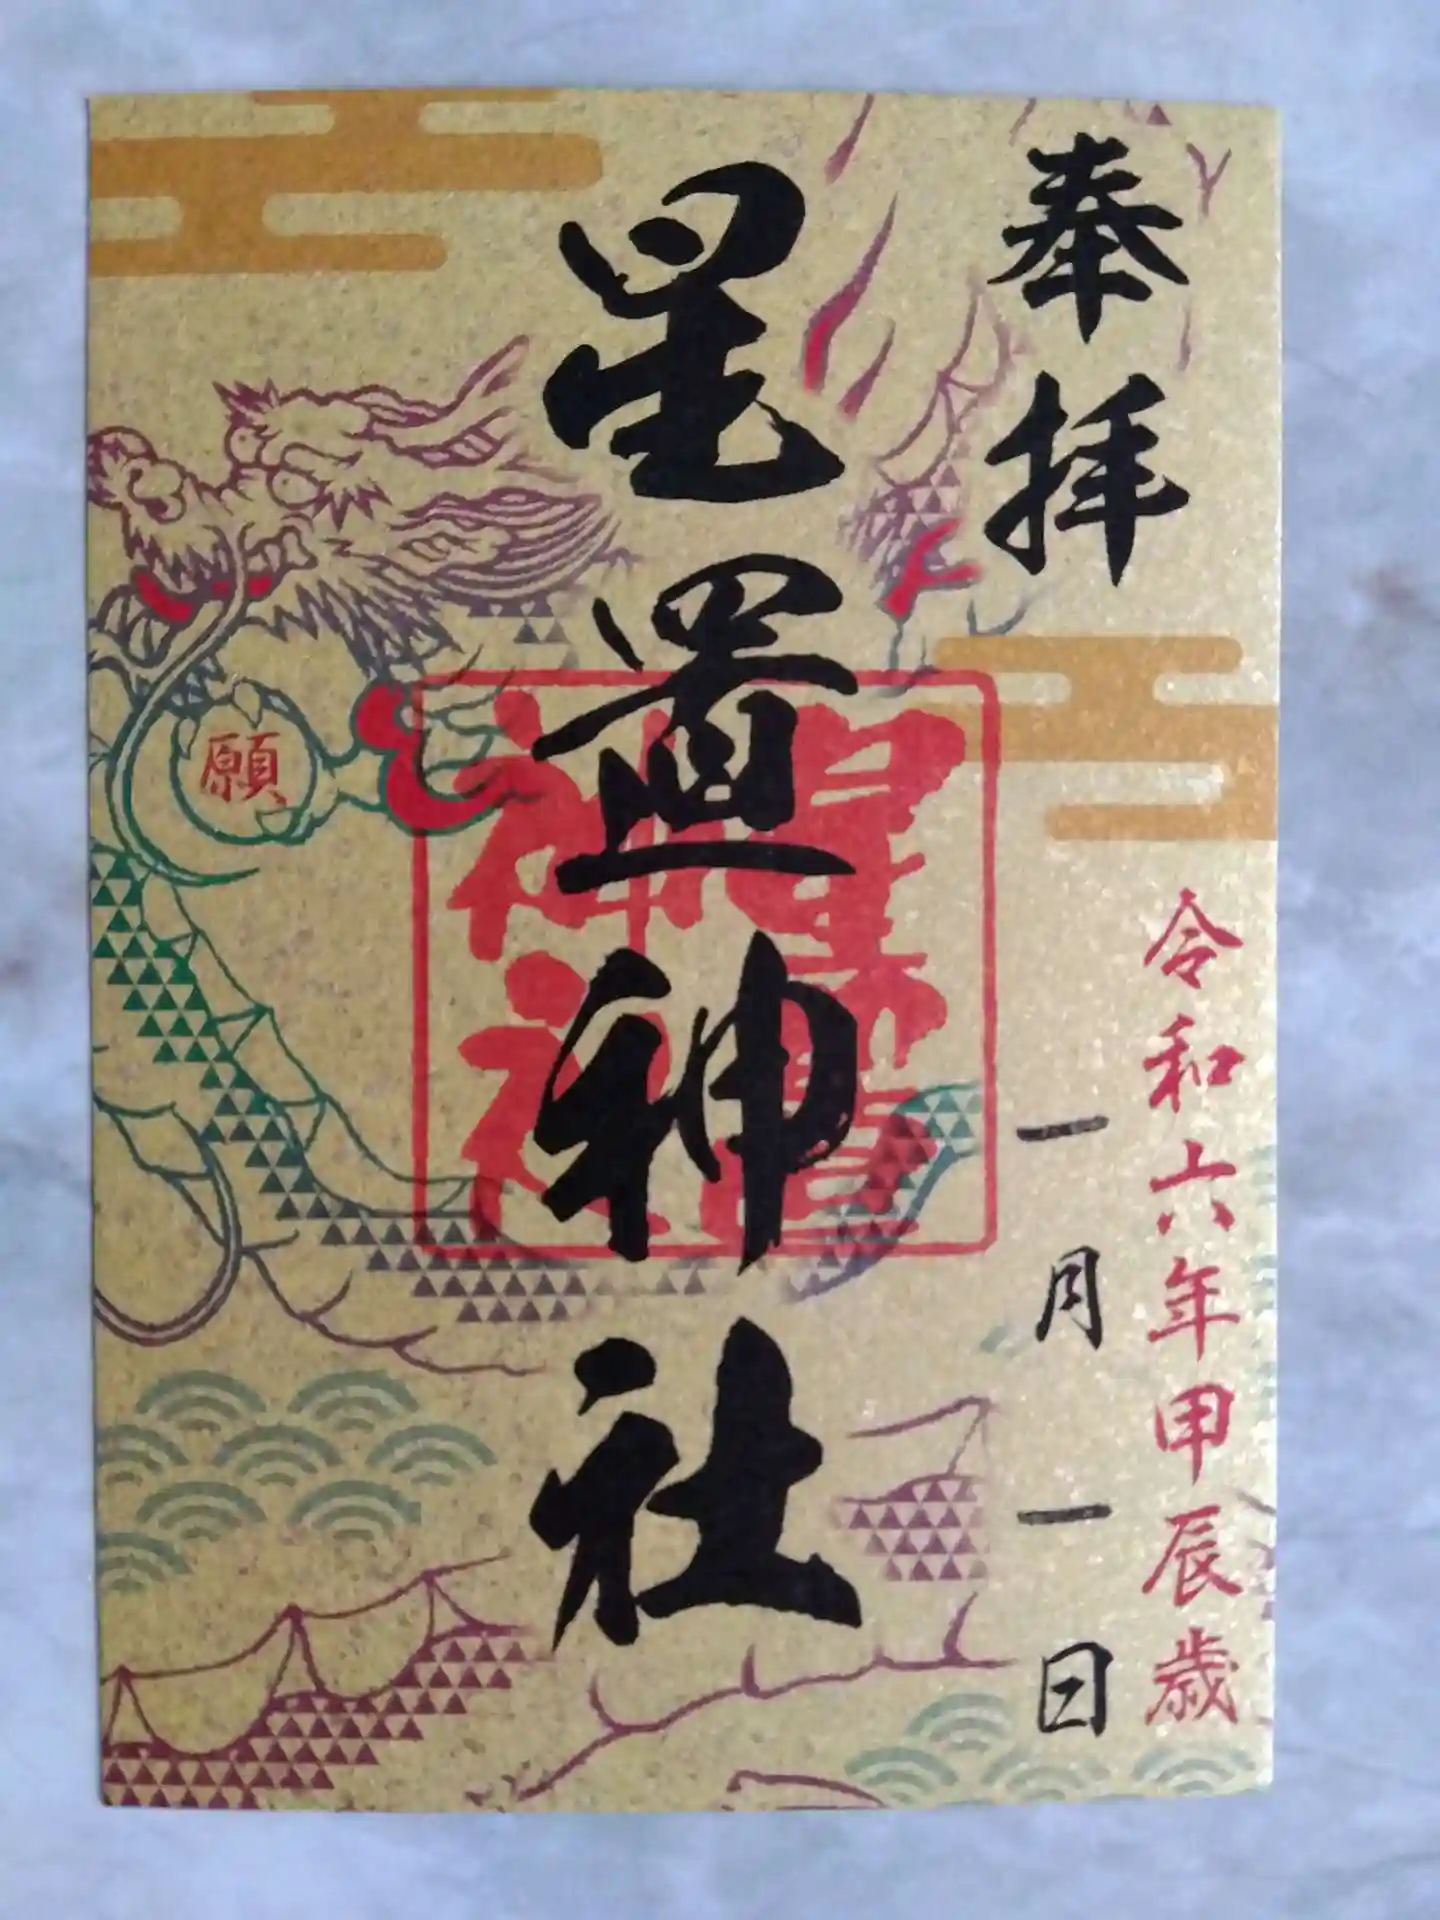 奉拝
令和六年甲辰歳
一月一日
星置神社
星置神社
願